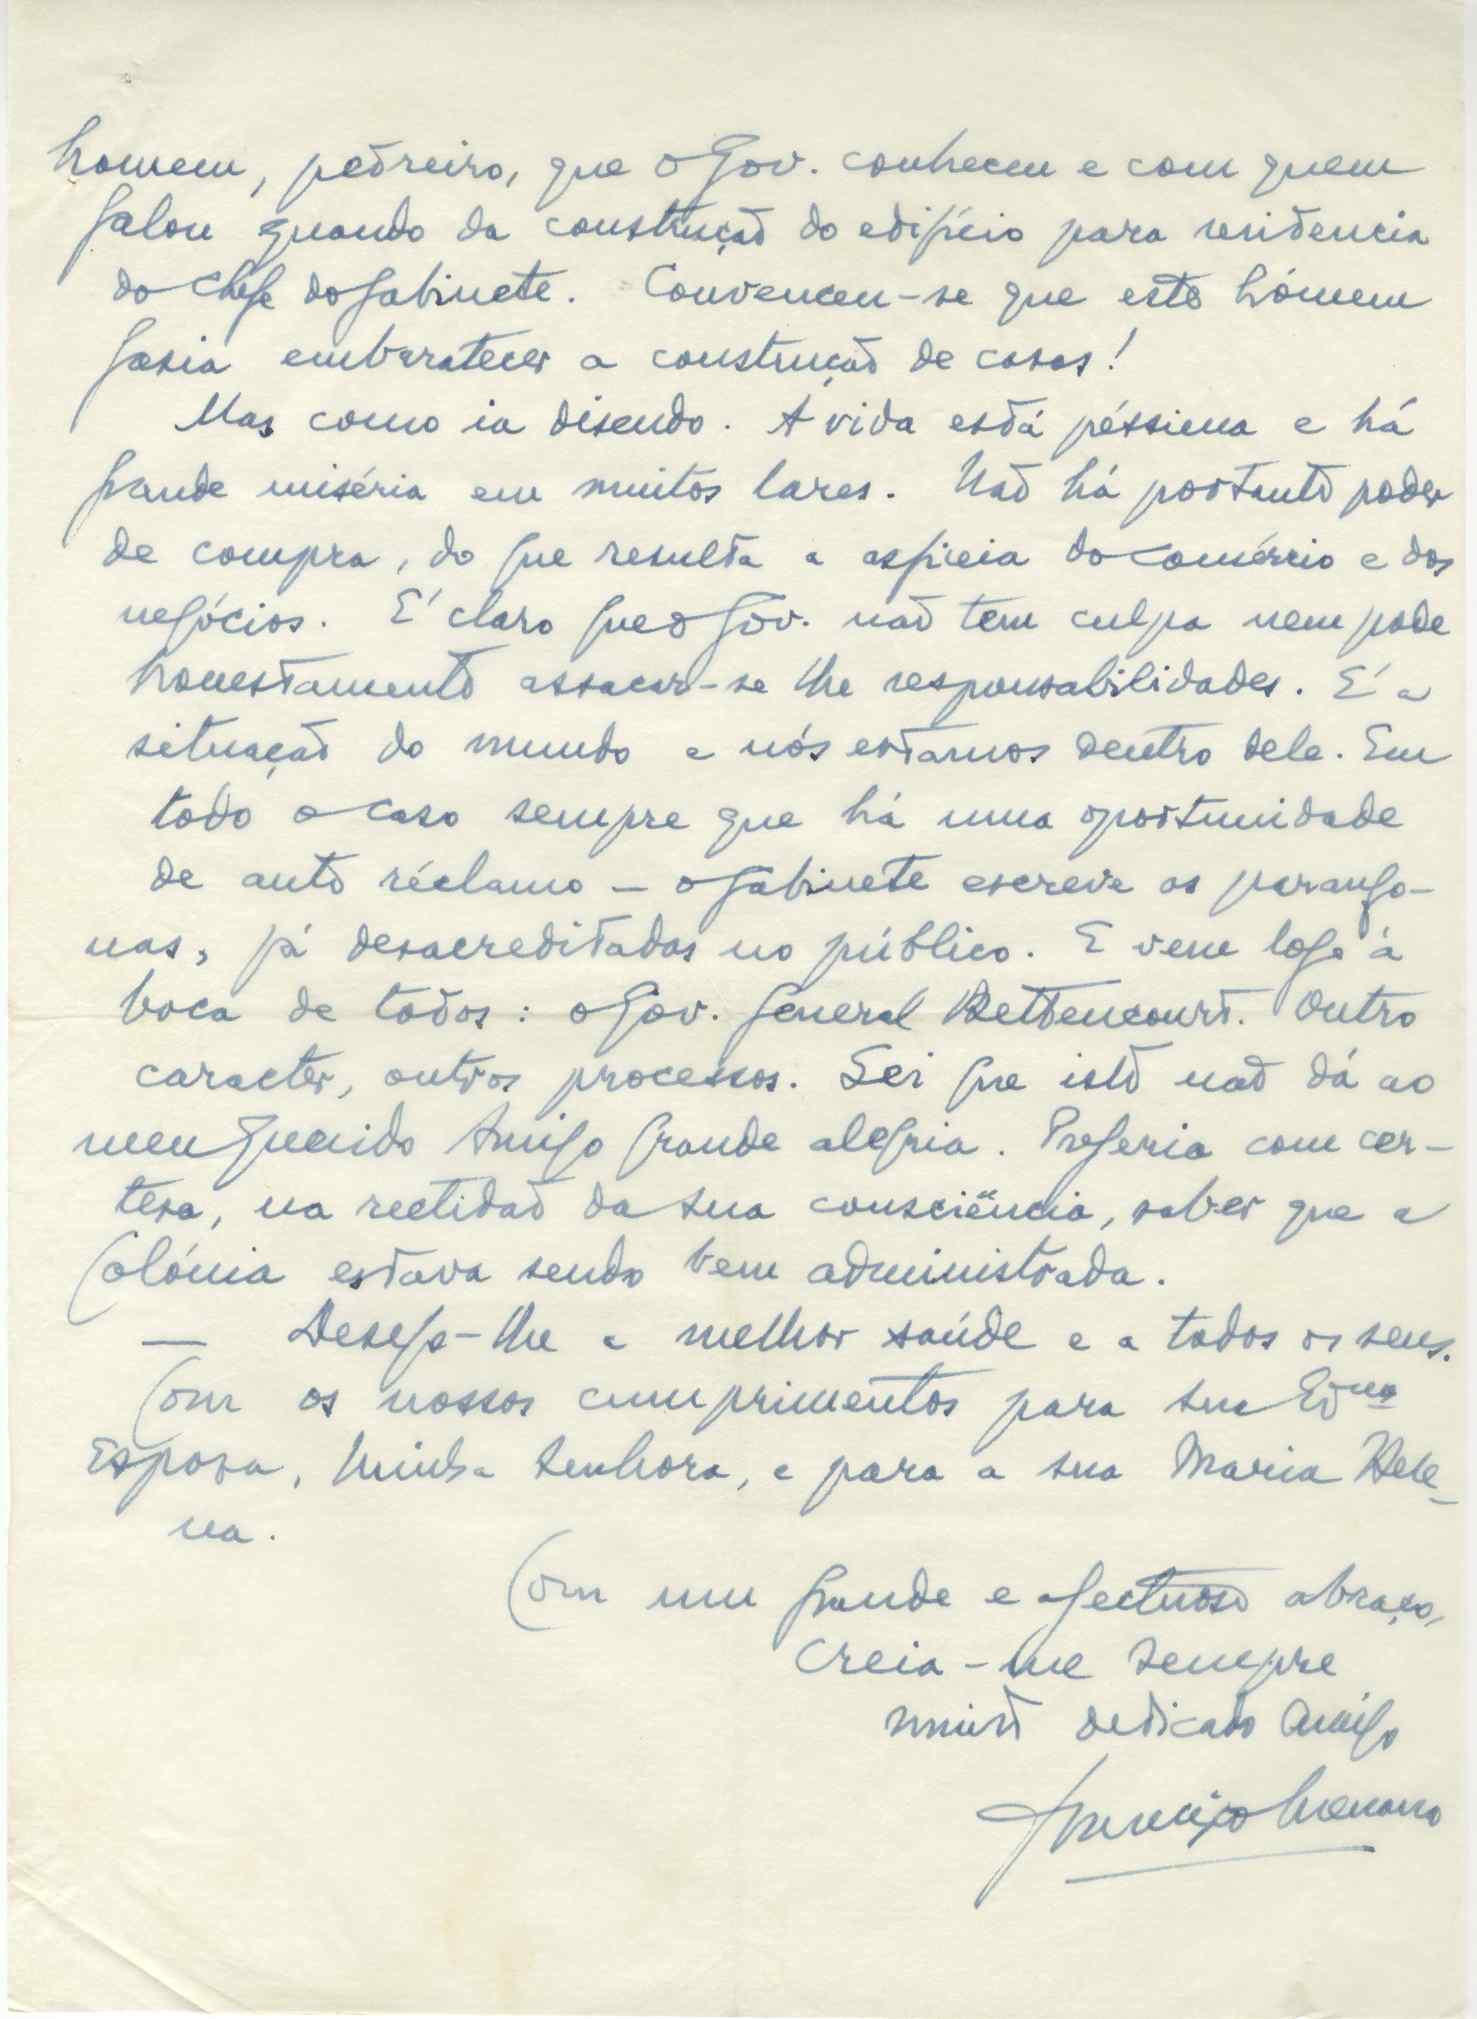 homem, pedreiro, que o Gov. conheceu e com quem
falou quando da construção do edifício para residencia
do Chefe do Gabinete. Convenceu-se que este hómem
fasia embaratecer a construção de casas!
Mas como ia disendo. A vida está péssima e há
grande miséria em muitos lares. Não há portanto poder
de compra, do que resulta a asficia do comércio e dos
negócios. É claro que o Gov. não tem culpa nem pode
honestamente assacar-se lhe responsabilidades. É a
situação do mundo e nós estamos dentro dele. Em
todo o caso sempre que há uma oportunidade
de auto réclamo — o Gabinete escreve as parango-
nas, já desacreditadas no público. E vem logo à
boca de todos: o Gov. General Bettencourt. Outro
caracter, outros processos. Sei que isto não dá ao
meu querido Amigo grande alegria. Preferia com cer-
tesa, na rectidão da sua consciência, saber que a
Colónia estava sendo bem administrada.
— Desejo-lhe a melhor saúde e a todos os seus.
Com os nossos cumprimentos para sua Exma
Esposa, Minha Senhora, e para a sua Maria Hele-
na.
Com um grande e afectuoso abraço,
creia-me sempre
muito dedicado amigo